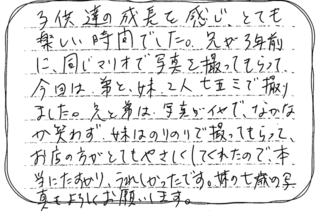 子供達の成長を感じ、とても
楽しい時間でした。兄が3年前
に、同じマリオで写真を撮ってもらって
今回は、弟と、妹、2人七五三で撮り
ました。兄と弟は、写真がイヤで、なかな
か笑わず、妹はのりのりで撮ってもらって、
お店の方がとてもやさしくしてくれたので、本
当にたすかり、うれしかったです。妹の七歳の写
真もよろしくお願いします。